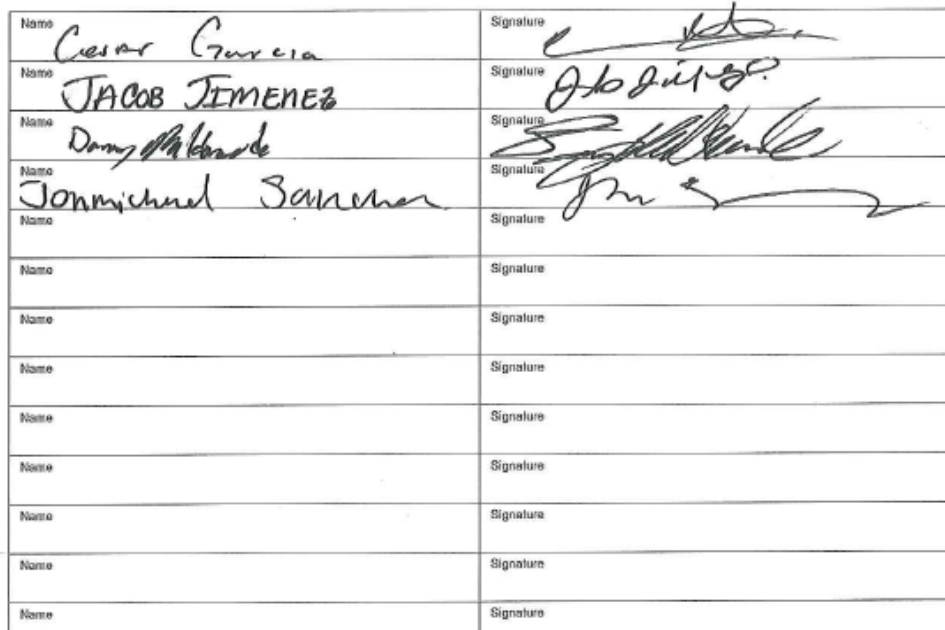 Name Cesar Garcia Signature
Name JACOB JIMENEZ Signature
Name Danny Maldonado Signature
Name Jonmichael Sanchez Signature
Name Signature
Name Signature
Name Signature
Name Signature
Name Signature
Name Signature
Name Signature
Name Signature
Name Signature